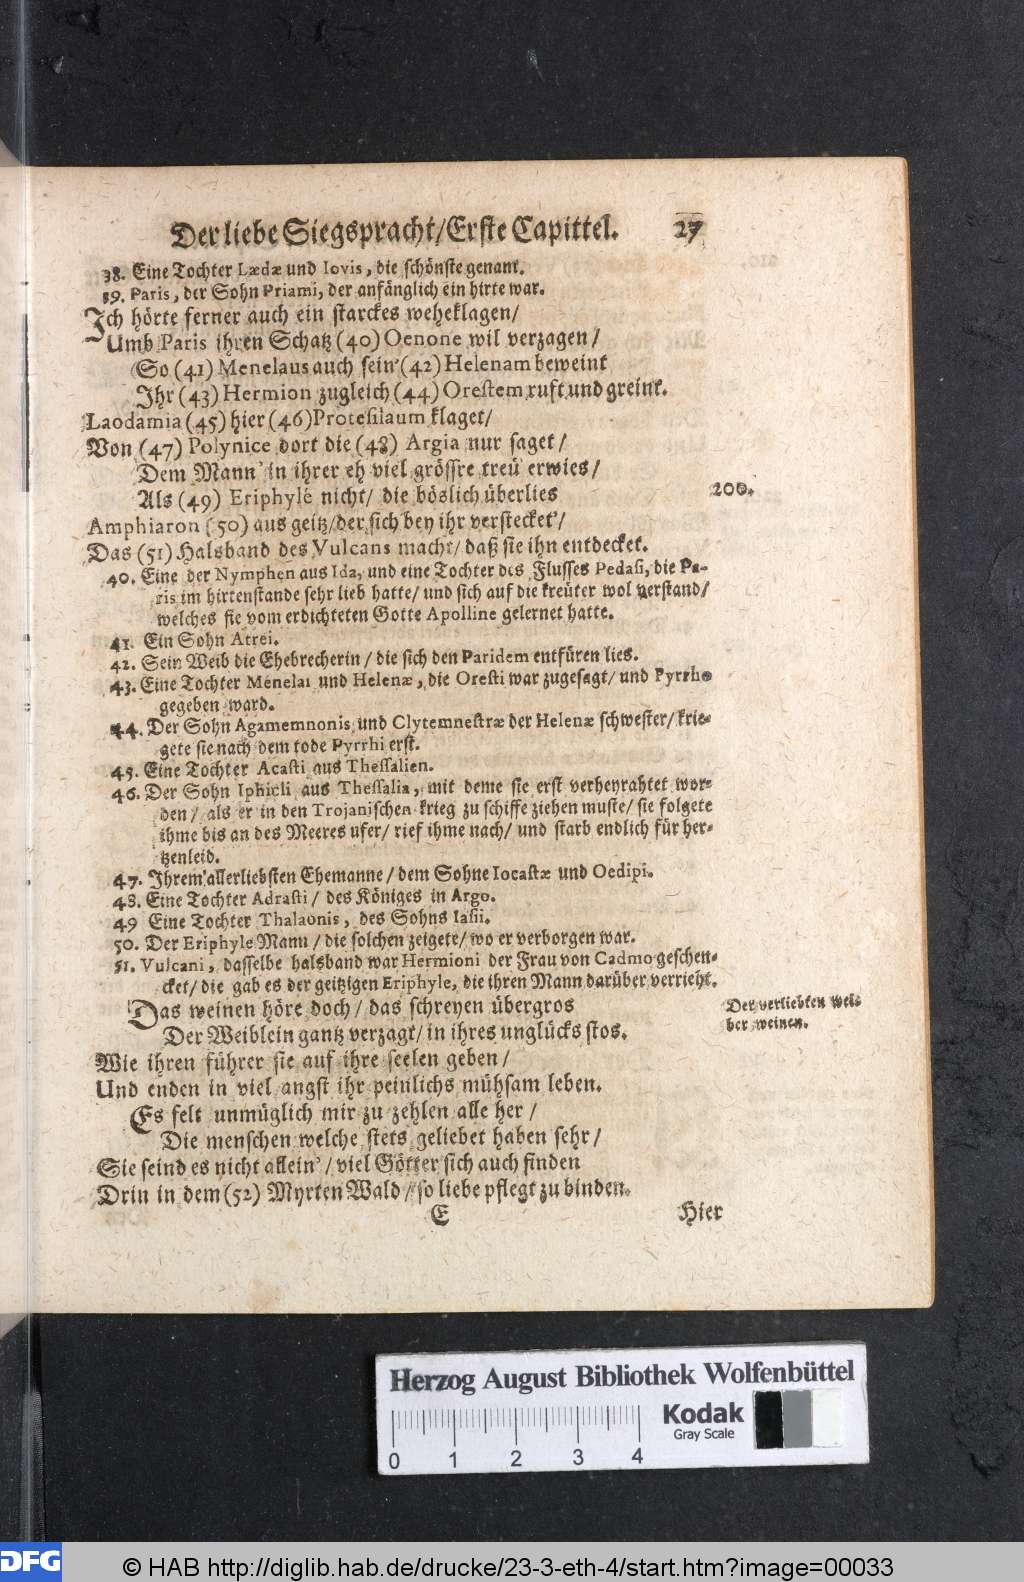 Der liebe Siegspracht/Erste Capittel. 27
38. Eine Tochter Lædæ und Iovis, die schönste genant.
39. Paris, der Sohn Priami, der anfänglich ein hirte war.
Ich hörte ferner auch ein starckes weheklagen/
Umb Paris ihren Schatz (40) Oenone wil verzagen/
So (41) Menelaus auch sein' (42) Helenam beweint
Ihr (43) Hermion zugleich (44) Orestem ruft und greint.
Laodamia (45) hier (46) Protesilaum klaget/
Von (47) Polynice dort die (48) Argia nur saget/
Dem Mann' in ihrer eh viel grössre treü erwies/
Als (49) Eriphyle nicht/ die böslich überlies
200.
Amphiaron (50) aus geitz/der sich bey ihr verstecket'/
Das (51) Halsband des Vulcans macht/ daß sie ihn entdecket.
40. Eine der Nymphen aus Ida, und eine Tochter des Flusses Pedasi, die Pa-
ris im hirtenstande sehr lieb hatte/ und sich auf die kreüter wol verstand/
welches sie vom erdichteten Gotte Apolline gelernet hatte.
41. Ein Sohn Atrei.
42. Sein Weib die Ehebrecherin/ die sich den Paridem entfüren lies.
43. Eine Tochter Menelai und Helenæ, die Oresti war zugesagt/ und Pyrrho
gegeben ward.
44. Der Sohn Agamemnonis und Clytemnestræ der Helenæ schwester/ krie-
gete sie nach dem tode Pyrrhi erst.
45. Eine Tochter Acasti aus Thessalien.
46. Der Sohn Iphicli aus Thessalia, mit deme sie erst verheyrahtet wor-
den/ als er in den Trojanischen krieg zu schiffe ziehen muste/ sie folgete
ihme bis an des Meeres ufer/ rief ihme nach/ und starb endlich für her-
tzenleid.
47. Ihrem allerliebsten Ehemanne/ dem Sohne Iocastæ und Oedipi.
48. Eine Tochter Adrasti/ des Königes in Argo.
49 Eine Tochter Thalaonis, des Sohns Iasii.
50. Der Eriphyle Mann/ die solchen zeigete/ wo er verborgen war.
51. Vulcani, dasselbe halsband war Hermioni der Frau von Cadmo geschen-
cket/ die gab es der geitzigen Eriphyle, die ihren Mann darüber verrieht.
Das weinen höre doch/ das schreyen übergros
Der verliebten wei-
ber weinen.
Der Weiblein gantz verzagt/ in ihres unglücks stos.
Wie ihren führer sie auf ihre seelen geben/
Und enden in viel angst ihr peinlichs mühsam leben.
Es felt unmüglich mir zu zehlen alle her/
Die menschen welche stets geliebet haben sehr/
Sie seind es nicht allein'/ viel Götter sich auch finden
Drin in dem (52) Myrten Wald/ so liebe pflegt zu binden.
E Hier
Herzog August Bibliothek Wolfenbüttel
Kodak
Gray Scale
0 1 2 3 4
DFG
© HAB http://diglib.hab.de/drucke/23-3-eth-4/start.htm?image=00033